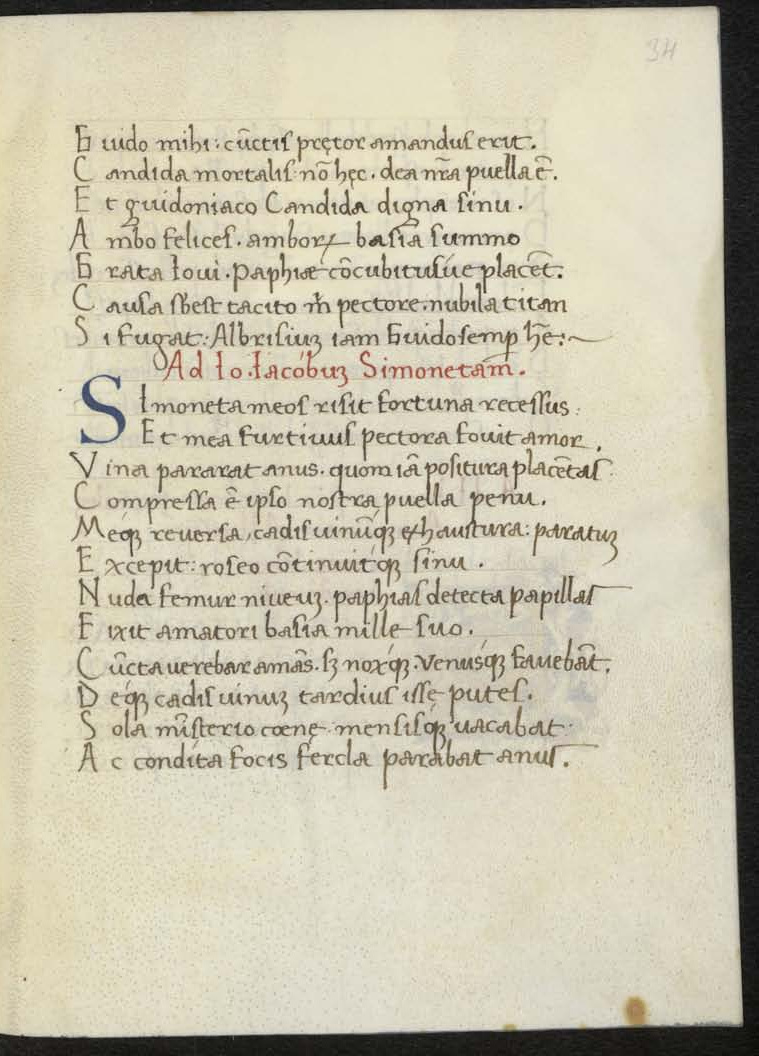 34
Guido mihi: cūctis prętor amandus erit.
Candida mortalis: nō hęc. dea nr̄a puella ē.
Et guidoniaco Candida digna sinu.
Ambo felices. amborꝝ basia summo
Grata Ioui. Paphiæ cōcubitusue placēt.
Causa sb̄est tacito m̄ pectore. nubila titan
Si fugat: Albrisiuꝫ iam Guido semꝑ h̄t:~
Ad Io. Iacobuꝫ Simonetam.
SImoneta meos risit fortuna recessus:
Et mea furtiuus pectora fouit amor.
Vina pararat anus. quom iā positura placētas:
Compressa ē ipso nostra puella penu.
Meqꝫ reuersa, cadis uinūqꝫ exhaustura: paratuꝫ
Excepit: roseo cōtinuitqꝫ sinu.
Nuda femur niueuꝫ. paphias detecta papillas
Fixit amatori basia mille suo.
Cūcta uerebar amās. sꝫ noxqꝫ. Venusqꝫ fauebāt.
Deqꝫ cadis uinuꝫ tardius isse putes.
Sola mīsterio cœnę mensisqꝫ uacabat:
Ac condita focis fercla parabat anus.